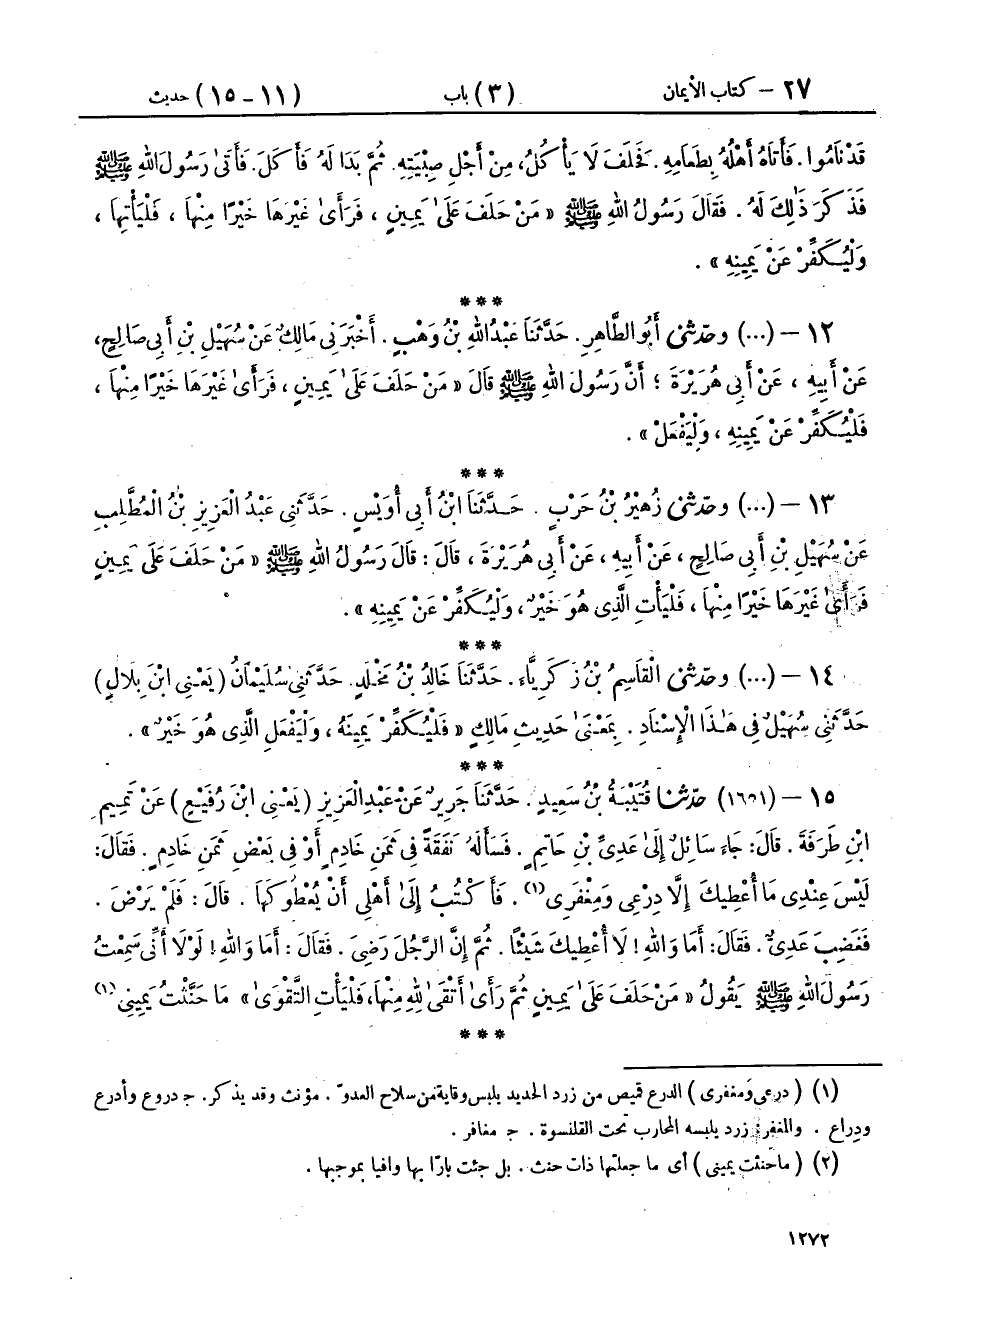 ٢٧ – كتاب الأيمان (٣) باب (١١-١٥) حديث
قَدْ نَامُوا. فَأَتَاهُ أَهْلُهُ بِطَعَامِهِ. فَحَلَفَ لَا يَأْكُلُ، مِنْ أَجْلِ صِبْيَتِهِ. ثُمَّ بَدَا لَهُ فَأَكَلَ. فَأَتَىٰ رَسُولَ اللهِ ﷺ
فَذَكَرَ ذَٰلِكَ لَهُ. فَقَالَ رَسُولُ اللهِ ﷺ « مَنْ حَلَفَ عَلَىٰ يَمِينٍ، فَرَأَىٰ غَيْرَهَا خَيْرًا مِنْهَا، فَلْيَأْتِهَا،
وَلْيُكَفِّرْ عَنْ يَمِينِهِ ».
***
١٢ – (...) وحدّثنى أَبُو الطَّاهِرِ. حَدَّثَنَا عَبْدُ اللهِ بْنُ وَهْبٍ. أَخْبَرَنِى مَالِكٌ عَنْ سُهَيْلِ بْنِ أَبِى صَالِحٍ،
عَنْ أَبِيهِ، عَنْ أَبِى هُرَيْرَةَ؛ أَنَّ رَسُولَ اللهِ ﷺ قَالَ « مَنْ حَلَفَ عَلَىٰ يَمِينٍ، فَرَأَىٰ غَيْرَهَا خَيْرًا مِنْهَا،
فَلْيُكَفِّرْ عَنْ يَمِينِهِ، وَلْيَفْعَلْ ».
***
١٣ – (...) وحدّثنى زُهَيْرُ بْنُ حَرْبٍ. حَدَّثَنَا ابْنُ أَبِى أُوَيْسٍ. حَدَّثَنِى عَبْدُ الْعَزِيزِ بْنُ الْمُطَّلِبِ
عَنْ سُهَيْلِ بْنِ أَبِى صَالِحٍ، عَنْ أَبِيهِ، عَنْ أَبِى هُرَيْرَةَ، قَالَ: قَالَ رَسُولُ اللهِ ﷺ « مَنْ حَلَفَ عَلَى يَمِينٍ
فَرَأَىٰ غَيْرَهَا خَيْرًا مِنْهَا، فَلْيَأْتِ الَّذِى هُوَ خَيْرٌ، وَلْيُكَفِّرْ عَنْ يَمِينِهِ ».
***
١٤ – (...) وحدّثنى الْقَاسِمُ بْنُ زَكَرِيَّاءَ. حَدَّثَنَا خَالِدُ بْنُ مَخْلَدٍ. حَدَّثَنِى سُلَيْمَانُ (يَعْنِى ابْنَ بِلَالٍ)
حَدَّثَنِى سُهَيْلٌ فِى هَٰذَا الْإِسْنَادِ. بِمَعْنَىٰ حَدِيثِ مَالِكٍ « فَلْيُكَفِّرْ يَمِينَهُ، وَلْيَفْعَلِ الَّذِى هُوَ خَيْرٌ ».
***
١٥ – (١٦٥١) حدّثنا قُتَيْبَةُ بْنُ سَعِيدٍ. حَدَّثَنَا جَرِيرٌ عَنْ عَبْدِ الْعَزِيزِ (يَعْنِى ابْنَ رُفَيْعٍ) عَنْ تَمِيمِ
ابْنِ طَرَفَةَ. قَالَ: جَاءَ سَائِلٌ إِلَىٰ عَدِىِّ بْنِ حَاتِمٍ. فَسَأَلَهُ نَفَقَةً فِى ثَمَنِ خَادِمٍ أَوْ فِى بَعْضِ ثَمَنِ خَادِمٍ. فَقَالَ:
لَيْسَ عِنْدِى مَا أُعْطِيكَ إِلَّا دِرْعِى وَمِغْفَرِى(١). فَأَكْتُبُ إِلَىٰ أَهْلِى أَنْ يُعْطُوكَهَا. قَالَ: فَلَمْ يَرْضَ.
فَغَضِبَ عَدِىٌّ. فَقَالَ: أَمَا وَاللهِ! لَا أُعْطِيكَ شَيْئًا. ثُمَّ إِنَّ الرَّجُلَ رَضِىَ. فَقَالَ: أَمَا وَاللهِ! لَوْلَا أَنِّى سَمِعْتُ
رَسُولَ اللهِ ﷺ يَقُولُ « مَنْ حَلَفَ عَلَىٰ يَمِينٍ ثُمَّ رَأَىٰ أَتْقَىٰ لِلهِ مِنْهَا، فَلْيَأْتِ التَّقْوَىٰ » مَا حَنَّثْتُ يَمِينِى(١)
***
(١) (درعى ومغفرى) الدرع قميص من زرد الحديد يلبس وقاية من سلاح العدوّ. مؤنث وقد يذكر. ج دروع وأدرع
ودراع. والمغفر زرد يلبسه المحارب تحت القلنسوة. ج مغافر.
(٢) (ما حنثت يمينى) أى ما جعلتها ذات حنث. بل جئت بارّا بها وافيا بموجبها.
١٢٧٢